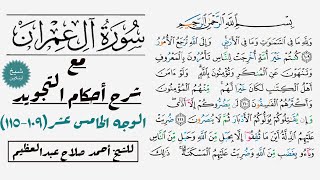 بِسْمِ اللَّهِ الرَّحْمَٰنِ الرَّحِيمِ
وَلِلَّهِ مَا فِي السَّمَٰوَٰتِ وَمَا فِي الْأَرْضِ وَإِلَى اللَّهِ تُرْجَعُ الْأُمُورُ
١٠٩ كُنتُمْ خَيْرَ أُمَّةٍ أُخْرِجَتْ لِلنَّاسِ تَأْمُرُونَ بِالْمَعْرُوفِ
وَتَنْهَوْنَ عَنِ الْمُنكَرِ وَتُؤْمِنُونَ بِاللَّهِ وَلَوْ ءَامَنَ
أَهْلُ الْكِتَٰبِ لَكَانَ خَيْرًا لَّهُم مِّنْهُمُ الْمُؤْمِنُونَ
وَأَكْثَرُهُمُ الْفَٰسِقُونَ ١١٠ لَن يَضُرُّوكُمْ إِلَّا أَذًى
وَإِن يُقَٰتِلُوكُمْ يُوَلُّوكُمُ الْأَدْبَارَ ثُمَّ لَا يُنصَرُونَ ١١١ ضُرِبَتْ
عَلَيْهِمُ الذِّلَّةُ أَيْنَ مَا ثُقِفُوا إِلَّا بِحَبْلٍ مِّنَ اللَّهِ وَحَبْلٍ مِّنَ النَّاسِ
وَبَاءُو بِغَضَبٍ مِّنَ اللَّهِ وَضُرِبَتْ عَلَيْهِمُ الْمَسْكَنَةُ ذَٰلِكَ
سورة آل عمران
مع
شرح أحكام التجويد
الوجه الخامس عشر (١٠٩-١١٥)
للشيخ أحمد صلاح عبدالعظيم